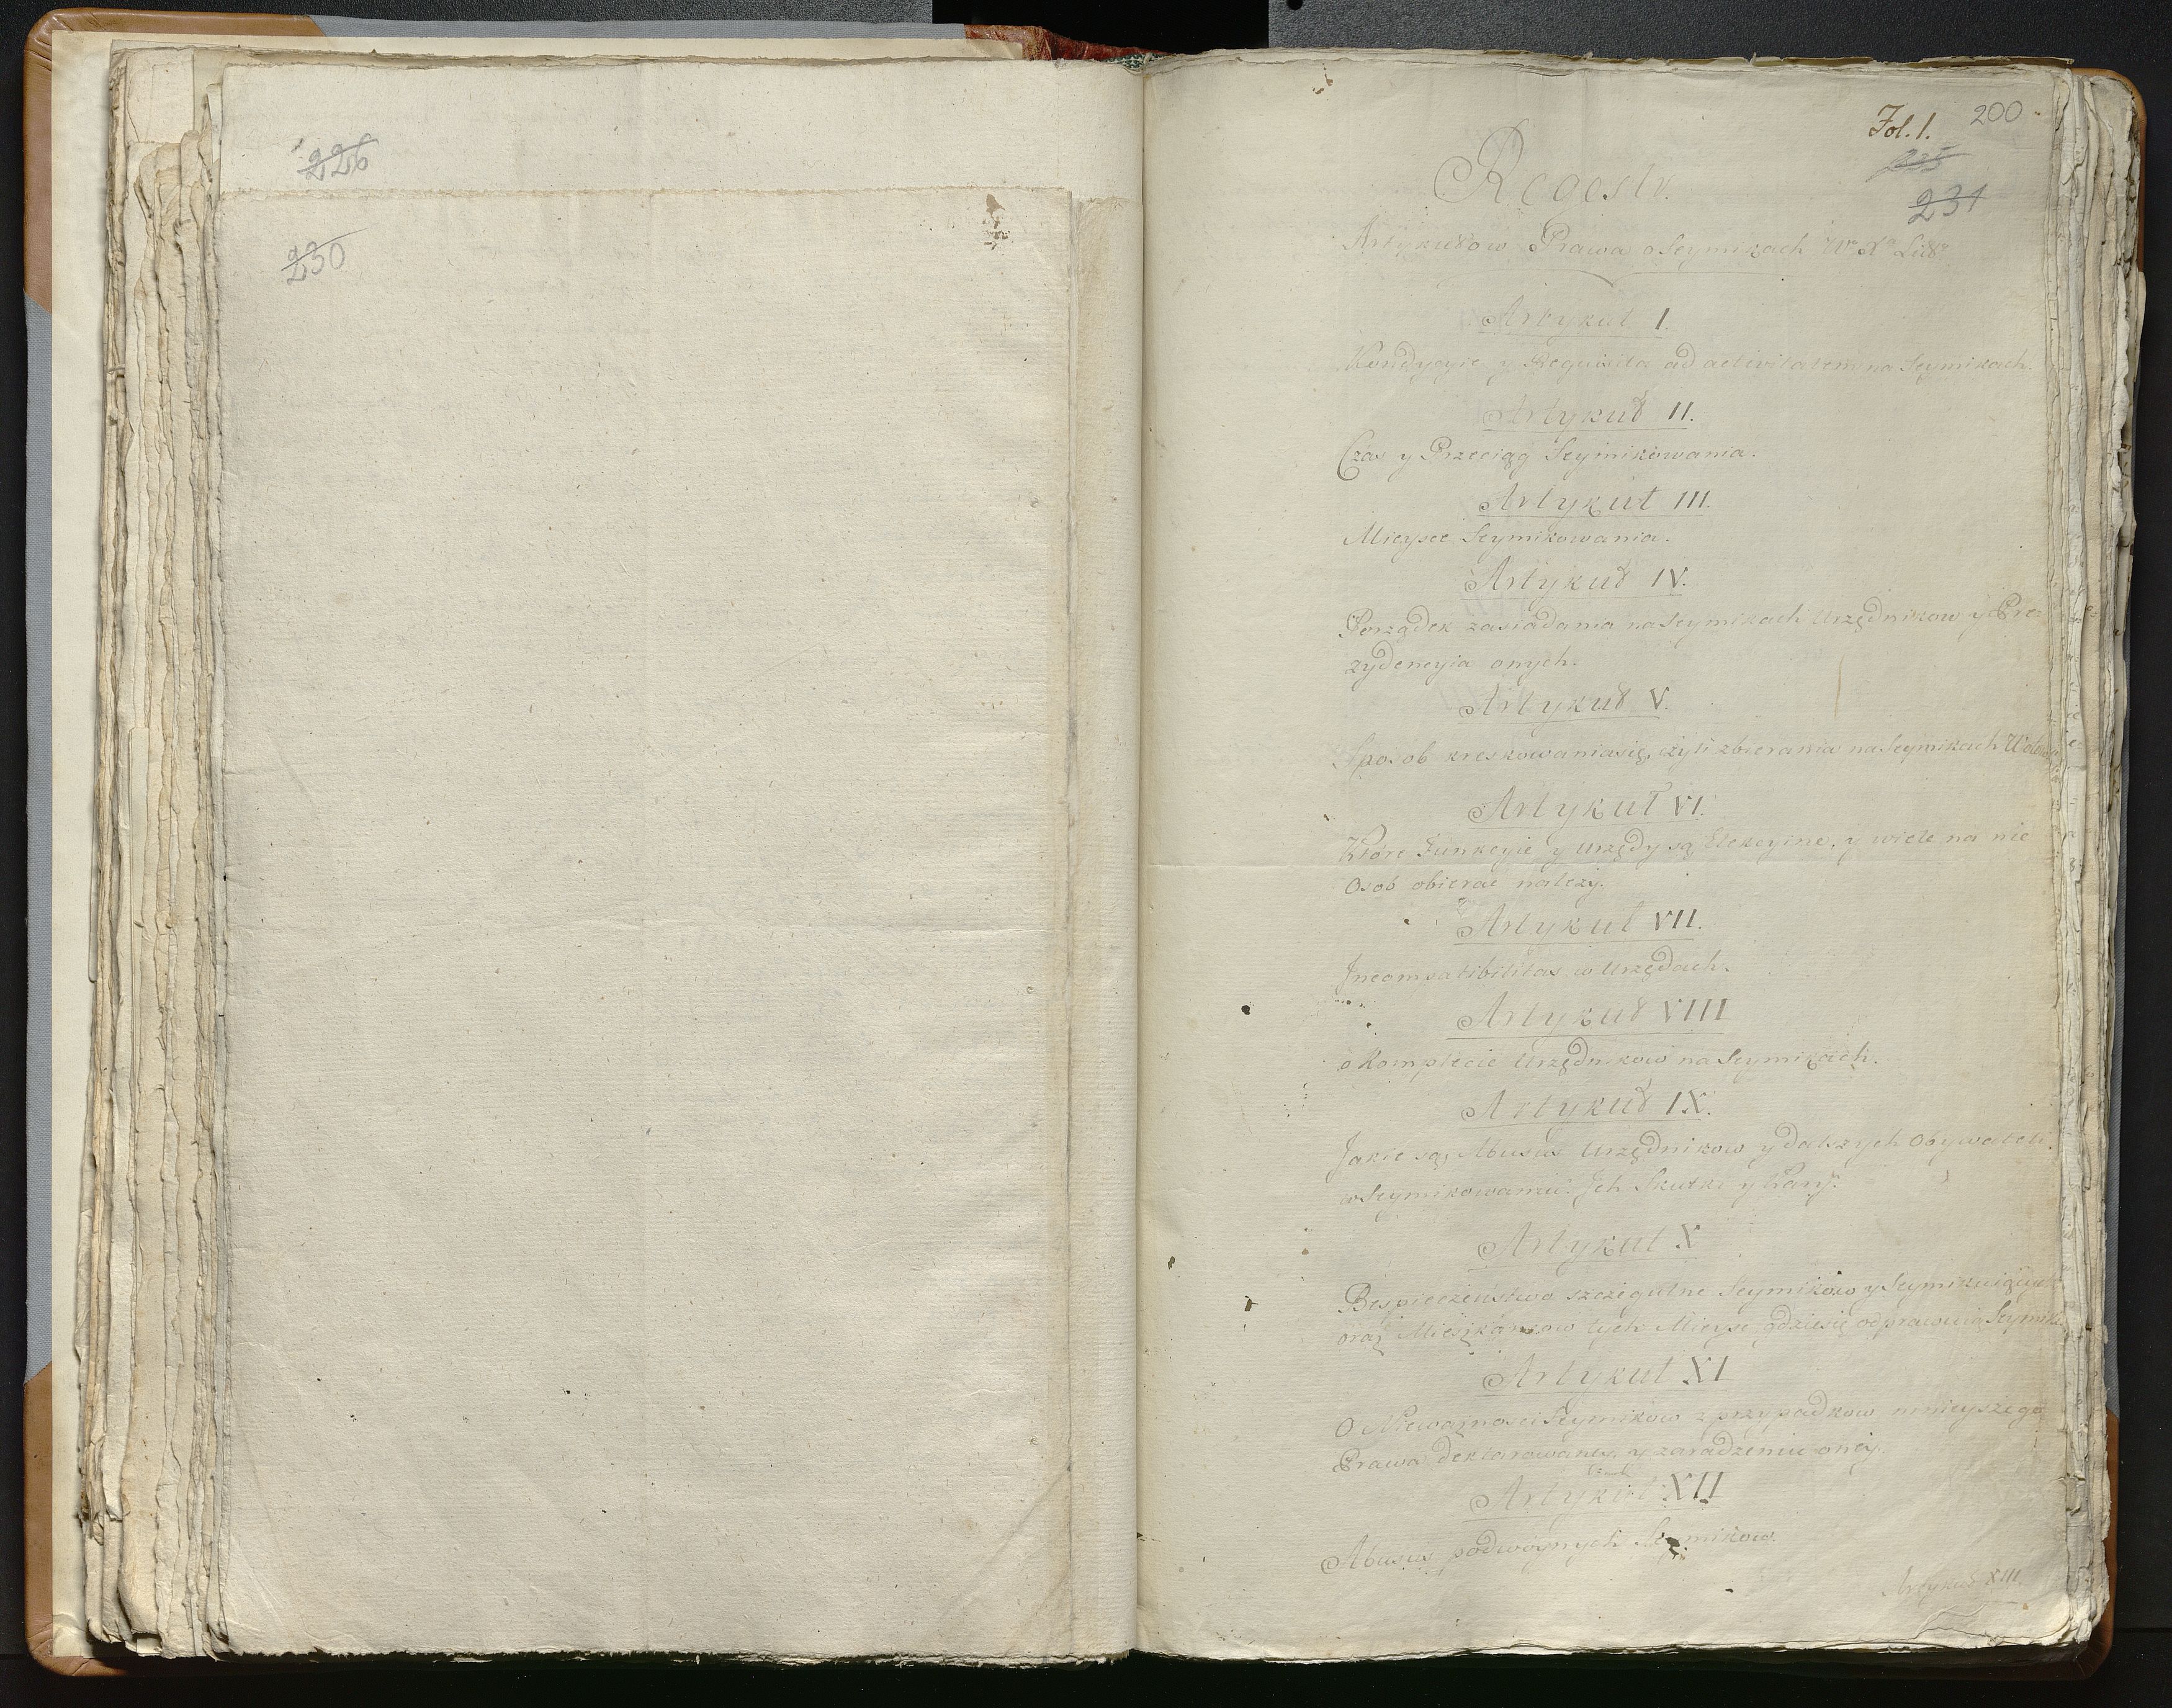 226
230
Fol. 1. 200
235
231
Regestr.
Artykułow Prawa o Seymikach Wº Xª Littº
Artykuł I.
Kondycyie y Requisita ad activitatem na Seymikach.
Artykuł II.
Czas y Przeciąg Seymikowania.
Artykuł III.
Mieysce Seymikowania.
Artykuł IV.
Porządek zasiadania na Seymikach Urzędnikow y Pre=
zydencyia onych.
Artykuł V.
Sposob kreskowania się, czyli zbierania na Seymikach
Artykuł VI.
Które Funkcyie y Urzędy są Elekcyine, y wiele na nie
Osob obierać należy.
Artykuł VII.
Incompatibilitas w Urzędach.
Artykuł VIII
o Komplecie Urzędnikow na Seymikach.
Artykuł IX.
Jakie są, Abusus Urzędnikow y dalszych Obywateli
w Seymikowaniu. Ich Skutki y
Artykuł X
Bespieczeństwo szczegulne Seymikow y Seymikuiących
oraz Mieszkancow tych Mieysc gdzie się odprawuią Seymiki
Artykuł XI
O Nieważnosci Seymikow z przypadkow ninieyszego
Prawa deklarowaney, y zaradzeniu oney.
Artykuł XII
Abusus podwoynych Seymikow.
Artykuł XIII.